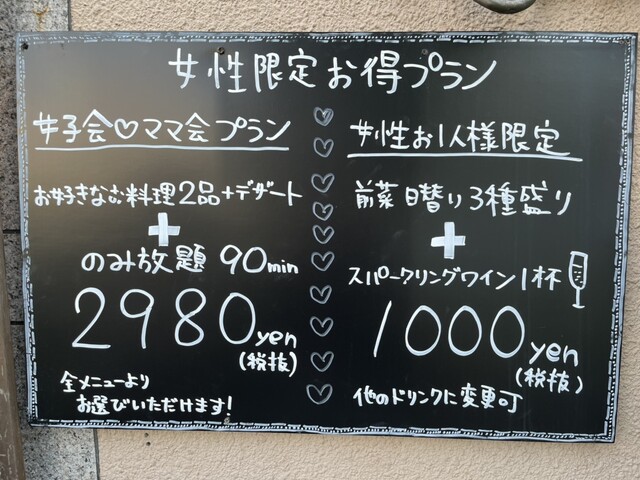 女性限定お得プラン
女子会♡ママ会プラン
お好きなお料理2品+デザート
+
のみ放題 90min
2980yen
(税抜)
全メニューより
お選びいただけます!
女性お1人様限定
前菜日替り3種盛り
+
スパークリングワイン1杯
1000yen
(税抜)
他のドリンクに変更可